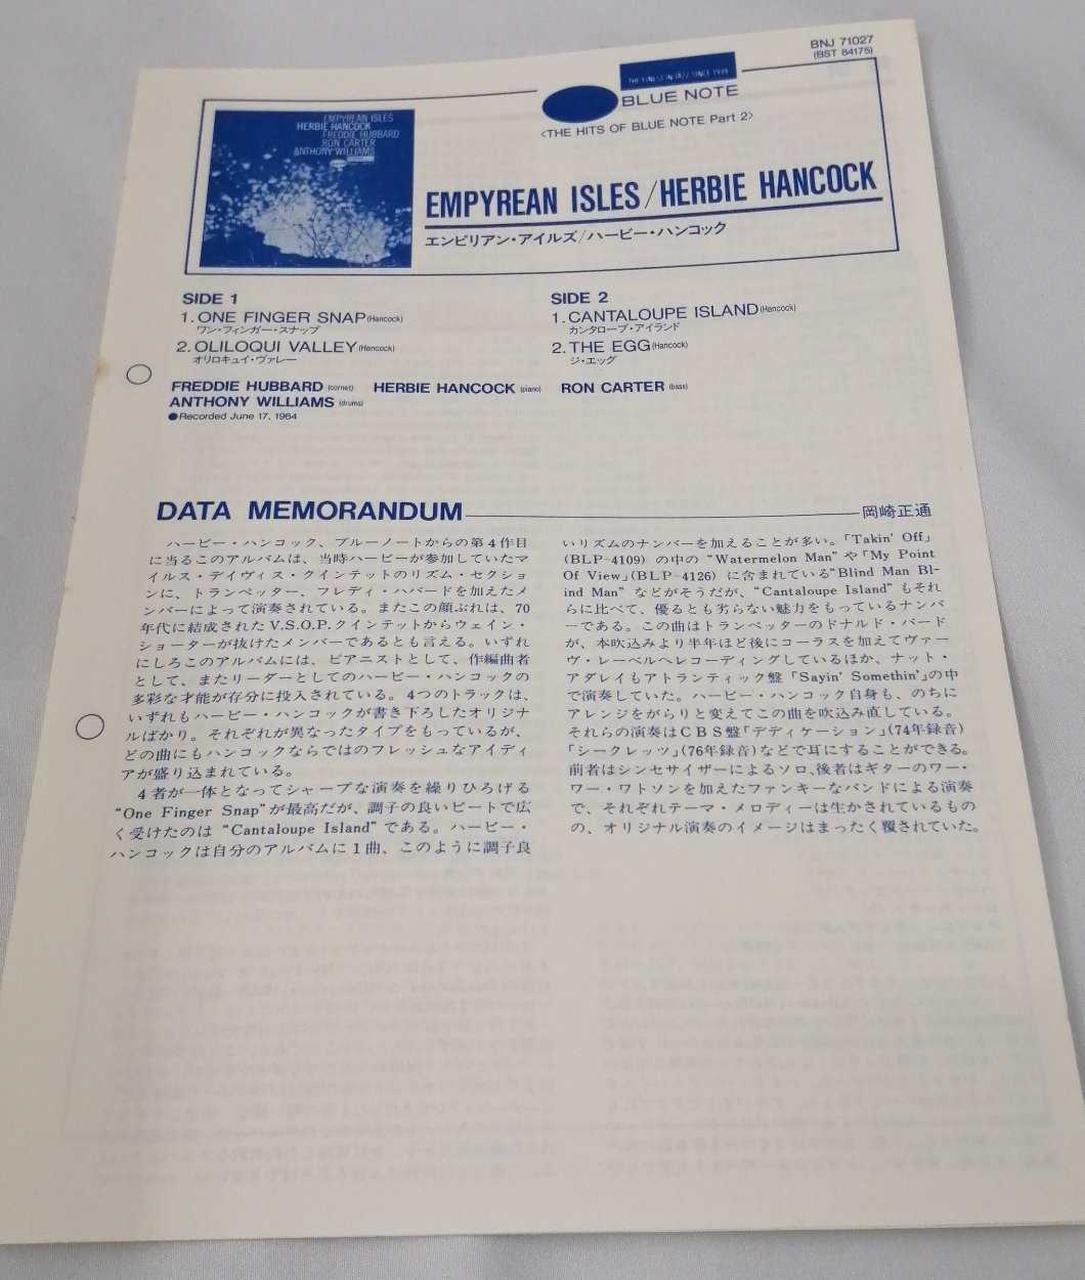 BNJ 71027
(BST 84175)
THE FINEST IN JAZZ SINCE 1939
BLUE NOTE
〈THE HITS OF BLUE NOTE Part 2〉
EMPYREAN ISLES
HERBIE HANCOCK
FREDDIE HUBBARD
RON CARTER
ANTHONY WILLIAMS
EMPYREAN ISLES/HERBIE HANCOCK
エンピリアン・アイルズ/ハービー・ハンコック
SIDE 1
1. ONE FINGER SNAP (Hancock)
ワン・フィンガー・スナップ
2. OLILOQUI VALLEY (Hancock)
オリロキュイ・ヴァレー
SIDE 2
1. CANTALOUPE ISLAND (Hancock)
カンタロープ・アイランド
2. THE EGG (Hancock)
ジ・エッグ
FREDDIE HUBBARD (cornet) HERBIE HANCOCK (piano) RON CARTER (bass)
ANTHONY WILLIAMS (drums)
●Recorded June 17, 1964
DATA MEMORANDUM 岡崎正通
ハービー・ハンコック、ブルーノートからの第4作目
に当るこのアルバムは、当時ハービーが参加していたマ
イルス・デイヴィス・クインテットのリズム・セクショ
ンに、トランペッター、フレディ・ハバードを加えたメ
ンバーによって演奏されている。またこの顔ぶれは、70
年代に結成されたV.S.O.P.クインテットからウェイン・
ショーターが抜けたメンバーであるとも言える。いずれ
にしろこのアルバムには、ピアニストとして、作編曲者
として、またリーダーとしてのハービー・ハンコックの
多彩な才能が存分に投入されている。4つのトラックは、
いずれもハービー・ハンコックが書き下ろしたオリジナ
ルばかり。それぞれが異なったタイプをもっているが、
どの曲にもハンコックならではのフレッシュなアイディ
アが盛り込まれている。
4者が一体となってシャープな演奏を繰りひろげる
“One Finger Snap”が最高だが、調子の良いビートで広
く受けたのは “Cantaloupe Island” である。ハービー・
ハンコックは自分のアルバムに1曲、このように調子良
いリズムのナンバーを加えることが多い。「Takin' Off」
(BLP-4109) の中の “Watermelon Man” や「My Point
Of View」(BLP-4126) に含まれている“Blind Man Bl-
ind Man” などがそうだが、“Cantaloupe Island” もそれ
らに比べて、優るとも劣らない魅力をもっているナンバ
ーである。この曲はトランペッターのドナルド・バード
が、本吹込みより半年ほど後にコーラスを加えてヴァー
ヴ・レーベルへレコーディングしているほか、ナット・
アダレイもアトランティック盤「Sayin' Somethin'」の中
で演奏していた。ハービー・ハンコック自身も、のちに
アレンジをがらりと変えてこの曲を吹込み直している。
それらの演奏はCBS盤「デディケーション」(74年録音)
「シークレッツ」(76年録音)などで耳にすることができる。
前者はシンセサイザーによるソロ、後者はギターのワー・
ワー・ワトソンを加えたファンキーなバンドによる演奏
で、それぞれテーマ・メロディーは生かされているもの
の、オリジナル演奏のイメージはまったく覆されていた。